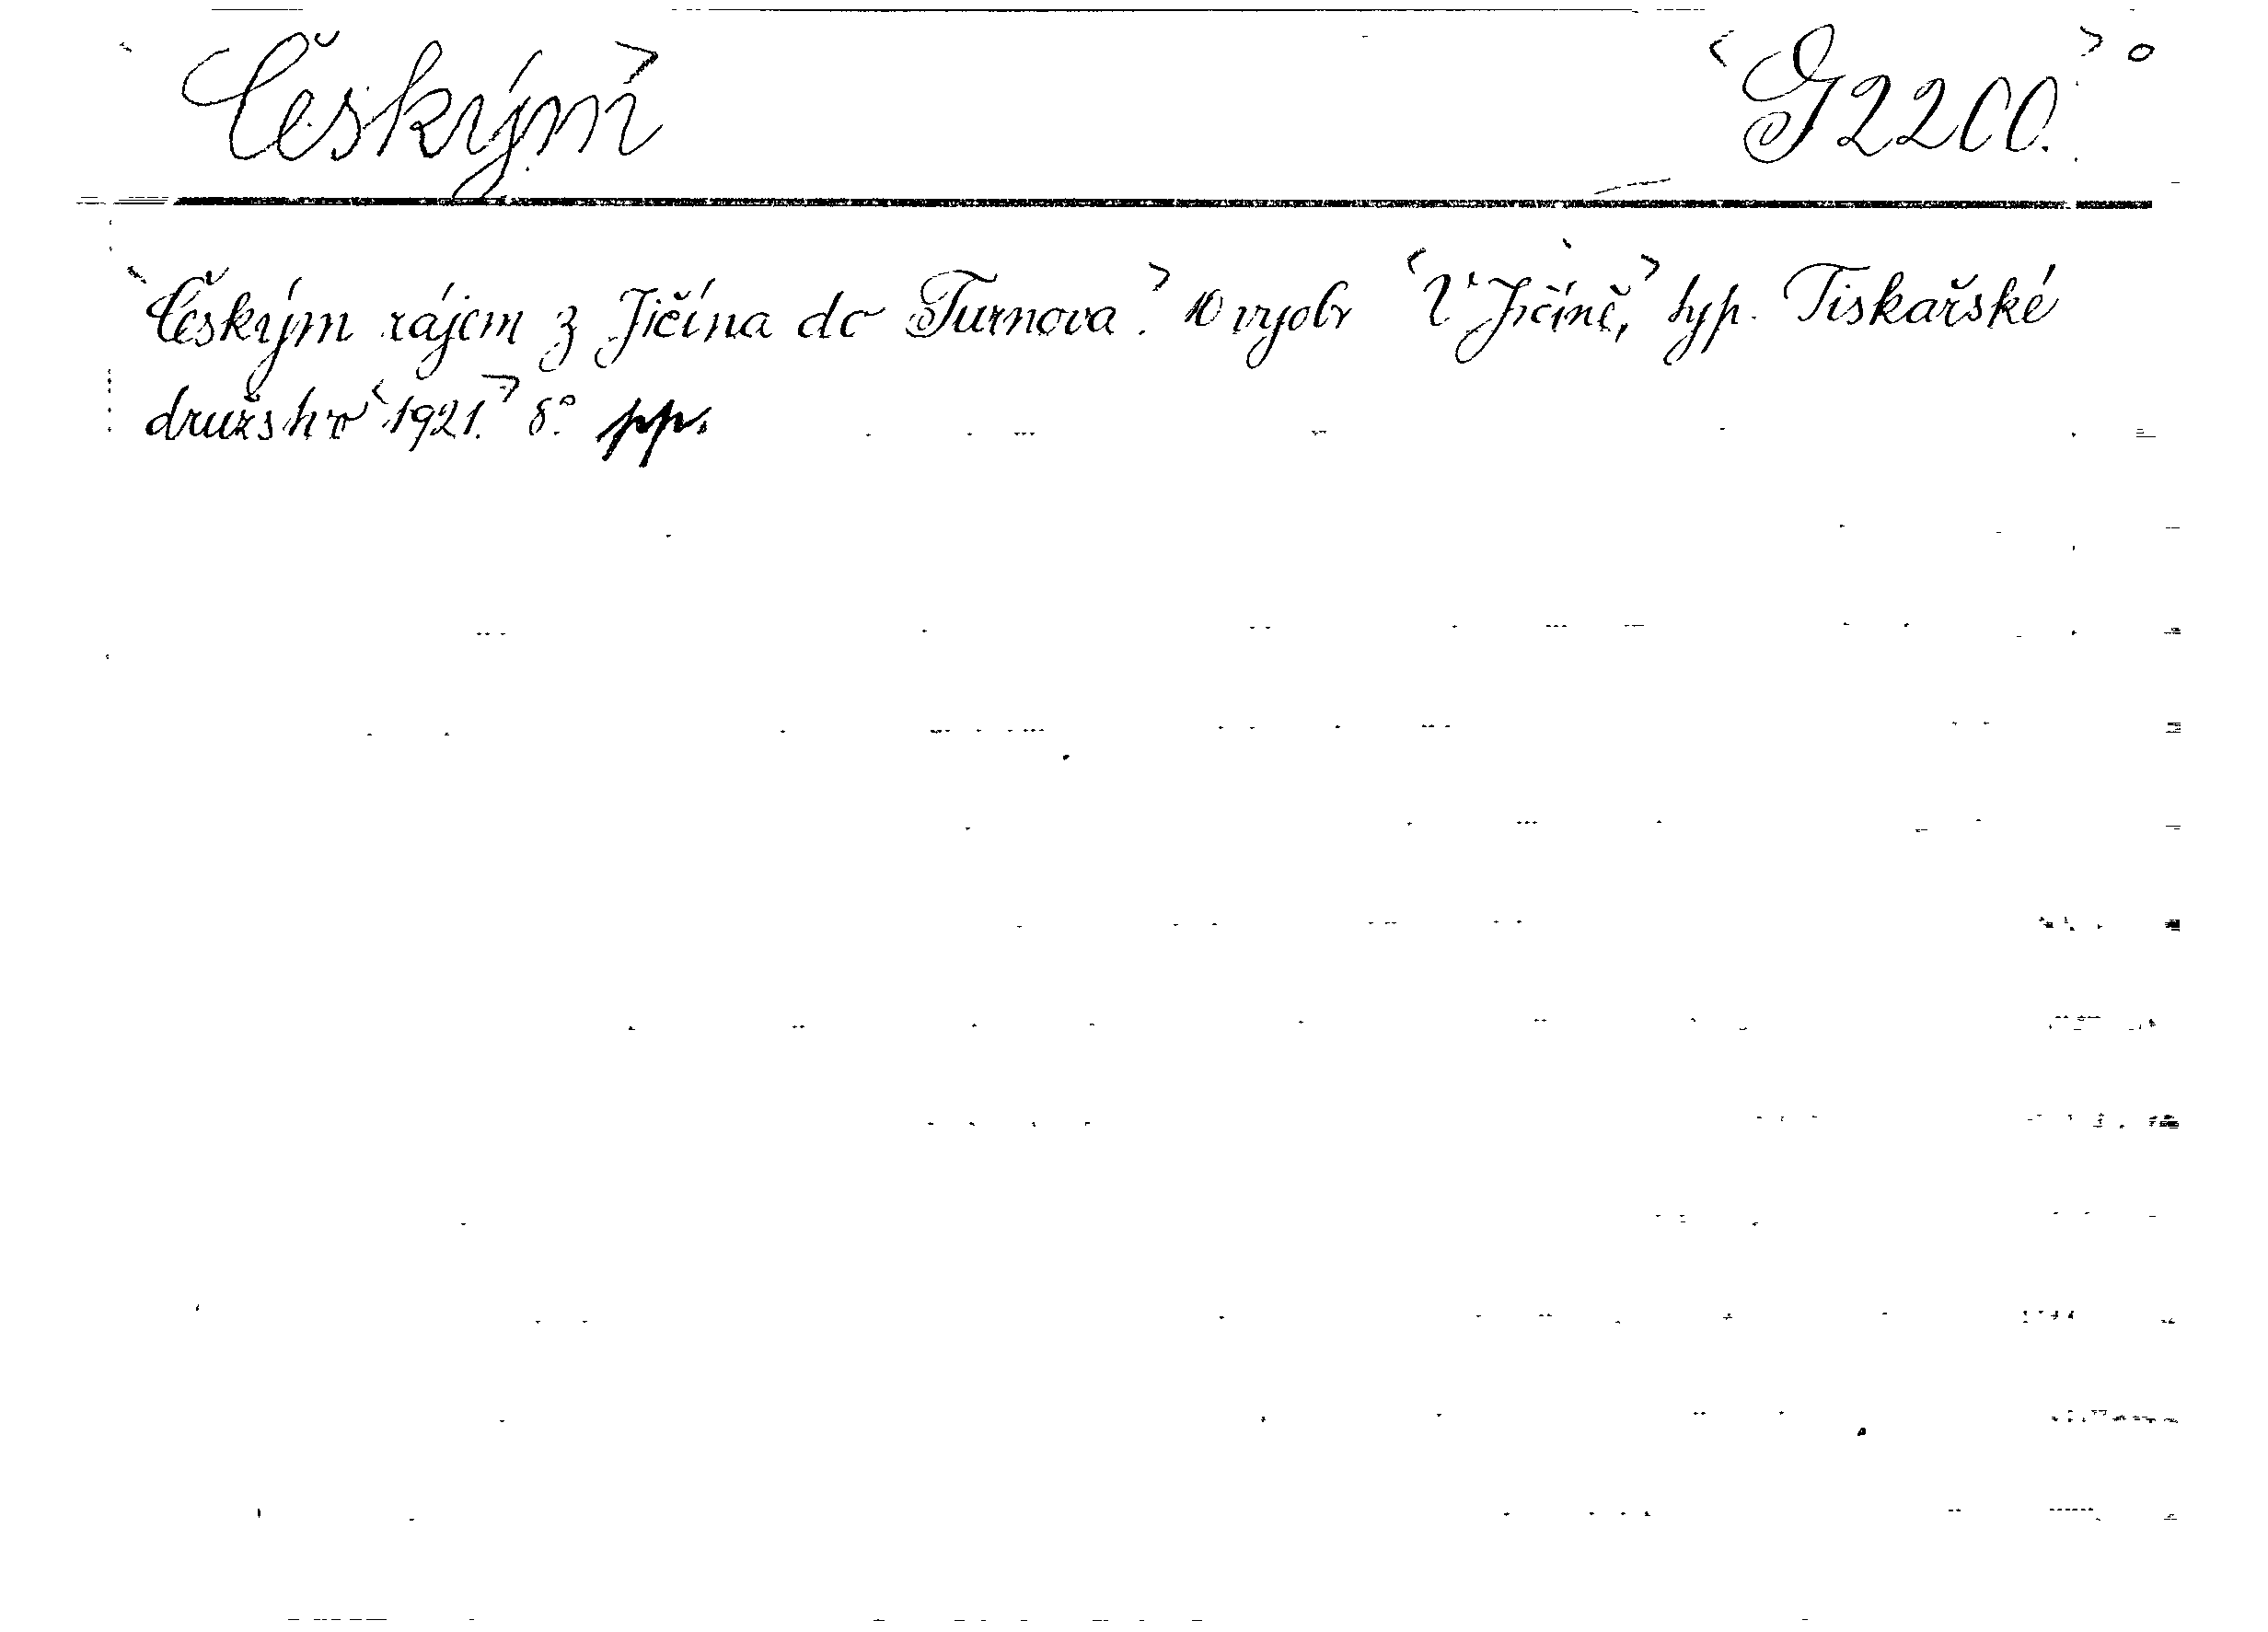 Českým G 2200.
Českým rájem z Jičína do Turnova. 10 vyobr V Jičíně, typ. Tiskařské
družstvo 1921. 8° pp.